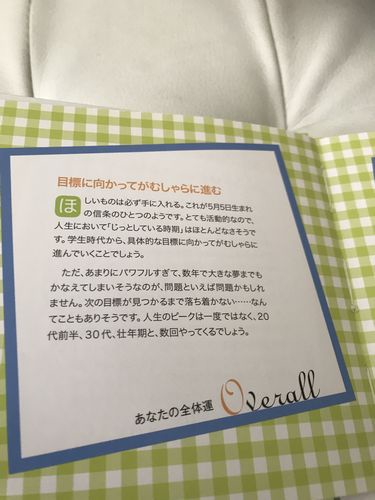 目標に向かってがむしゃらに進む
ほしいものは必ず手に入れる。これが5月5日生まれ
の信条のひとつのようです。とても活動的なので、
人生において「じっとしている時期」はほとんどなさそうで
す。学生時代から、具体的な目標に向かってがむしゃらに
進んでいくことでしょう。
ただ、あまりにパワフルすぎて、数年で大きな夢までも
かなえてしまいそうなのが、問題といえば問題かもしれ
ません。次の目標が見つかるまで落ち着かない……なん
てこともありそうです。人生のピークは一度ではなく、20
代前半、30代、壮年期と、数回やってくるでしょう。
あなたの全体運 Overall